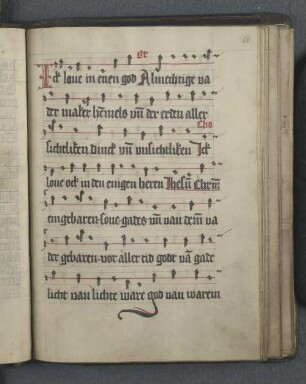 or
Ick loue in enen god Almechtige va
der maker hemels vñ der erden aller
Cho
sichtliken dinck vñ vnsichtliken Ick
loue ock in den enigen heren Ihesū Christū
eingebaren sone gades vñ van dem va
der gebaren vor aller tid godt vā gade
licht van lichte ware god van warem